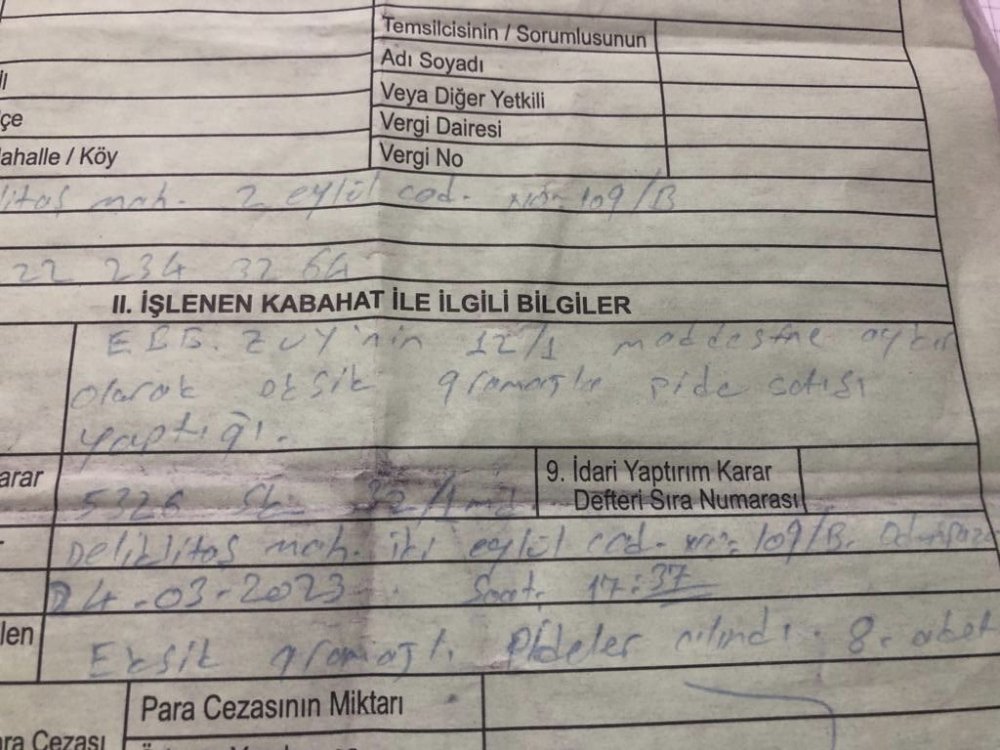 Temsilcisinin / Sorumlusunun
Adı Soyadı
Veya Diğer Yetkili
Vergi Dairesi
Vergi No
İl
çe
ahalle / Köy
litaş mah. 2 eylül cad. no: 109/B
22 234 32 64
II. İŞLENEN KABAHAT İLE İLGİLİ BİLGİLER
EBB. ZUY'nin 12/1 maddesine aykırı
olarak eksik gramajla pide satışı
yaptığı.
arar
5326 SK 32/1 md
9. İdari Yaptırım Karar
Defteri Sıra Numarası
Deliklitaş mah. iki eylül cad. no: 109/B. Odunpaza
24-03-2023 Saat. 17:37
len
Eksik gramajlı Pideler alındı. 8. adet
Para Cezasının Miktarı
ara Cezası